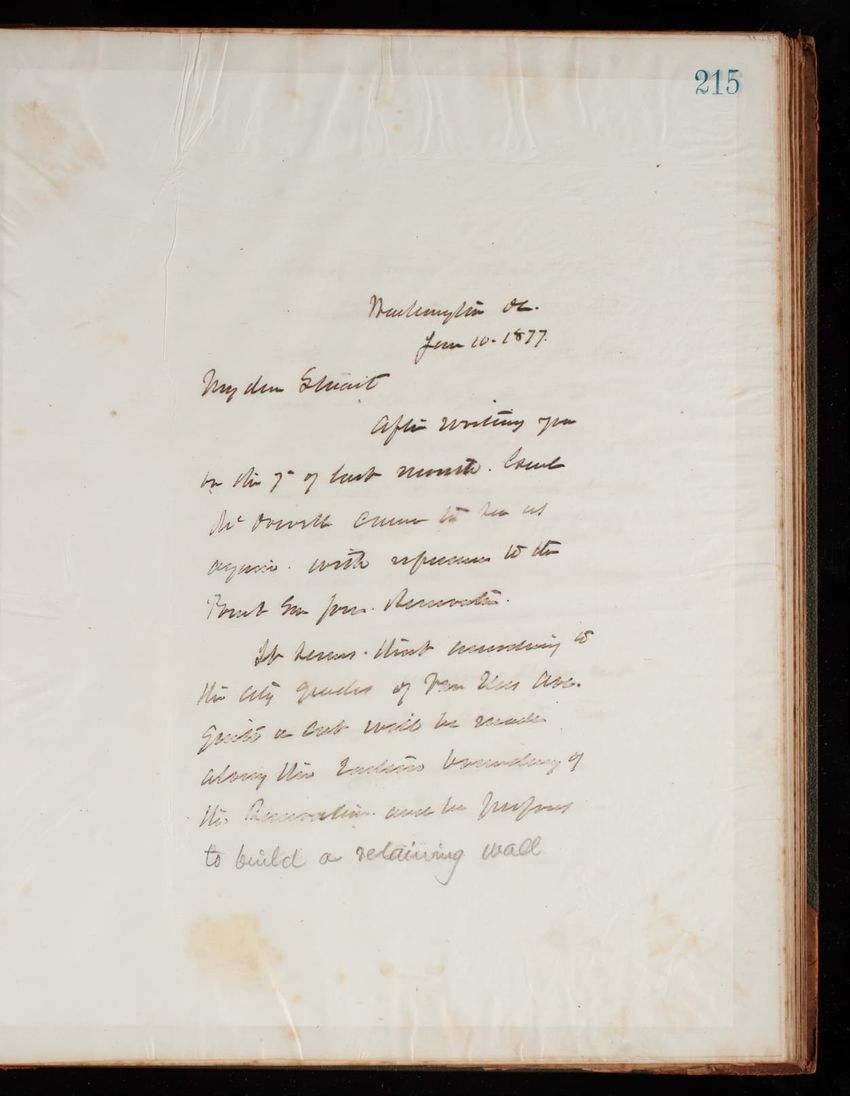 215
Washington DC.
Jan 10. 1877.
My dear Stuart
After writing you
on the 7th of last month. Genl
McDowell came to see us
again. with reference to the
Point San Jose. Reservation.
It seems. that according to
the city grades of Van Ness Ave.
Quite a cut will be made
along the Eastern boundary of
the Reservation. and he proposes
to build a retaining wall